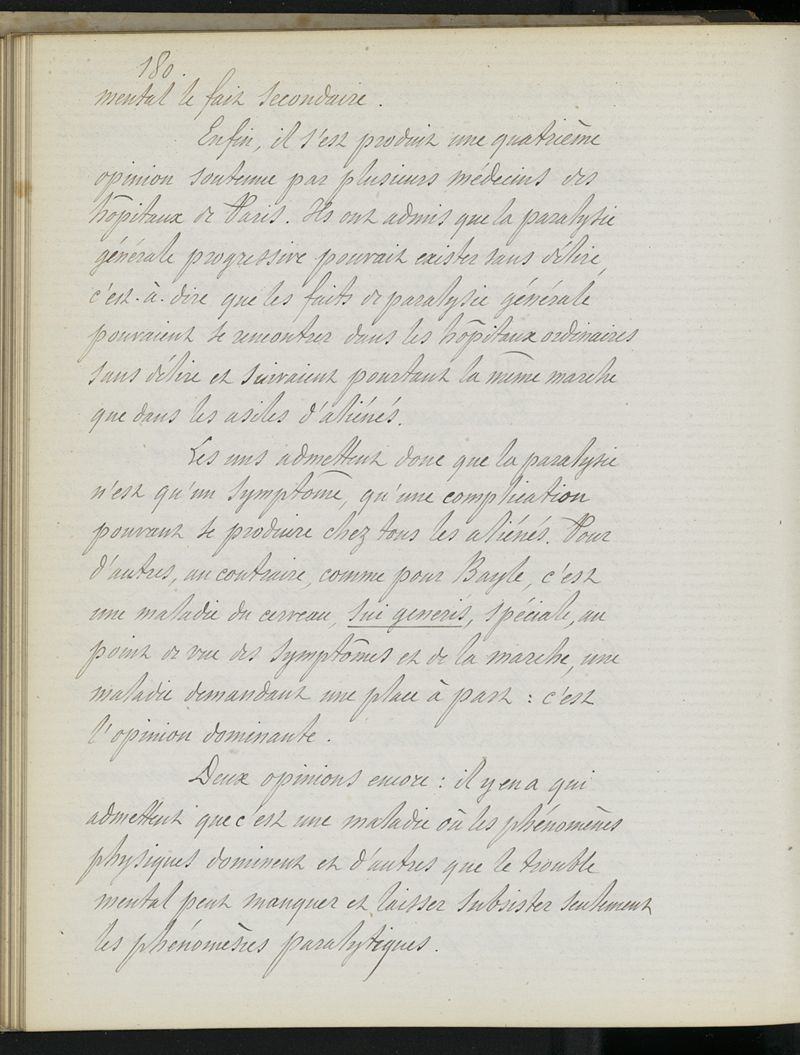 180.
mental le fait secondaire.
Enfin, il s'est produit une quatrième
opinion soutenue par plusieurs médecins des
hôpitaux de Paris. Ils ont admis que la paralysie
générale progressive pouvait exister sans délire,
c'est-à-dire que les faits de paralysie générale
pouvaient se rencontrer dans les hôpitaux ordinaires
sans délire et suivaient pourtant la même marche
que dans les asiles d'aliénés.
Les uns admettent donc que la paralysie
n'est qu'un symptôme, qu'une complication
pouvant se produire chez tous les aliénés. Pour
d'autres, au contraire, comme pour Bayle, c'est
une maladie du cerveau, sui generis, spéciale, au
point de vue des symptômes et de la marche, une
maladie demandant une place à part : c'est
l'opinion dominante.
Deux opinions encore : il y en a qui
admettent que c'est une maladie où les phénomènes
physiques dominent et d'autres que le trouble
mental peut manquer et laisser subsister seulement
les phénomènes paralytiques.